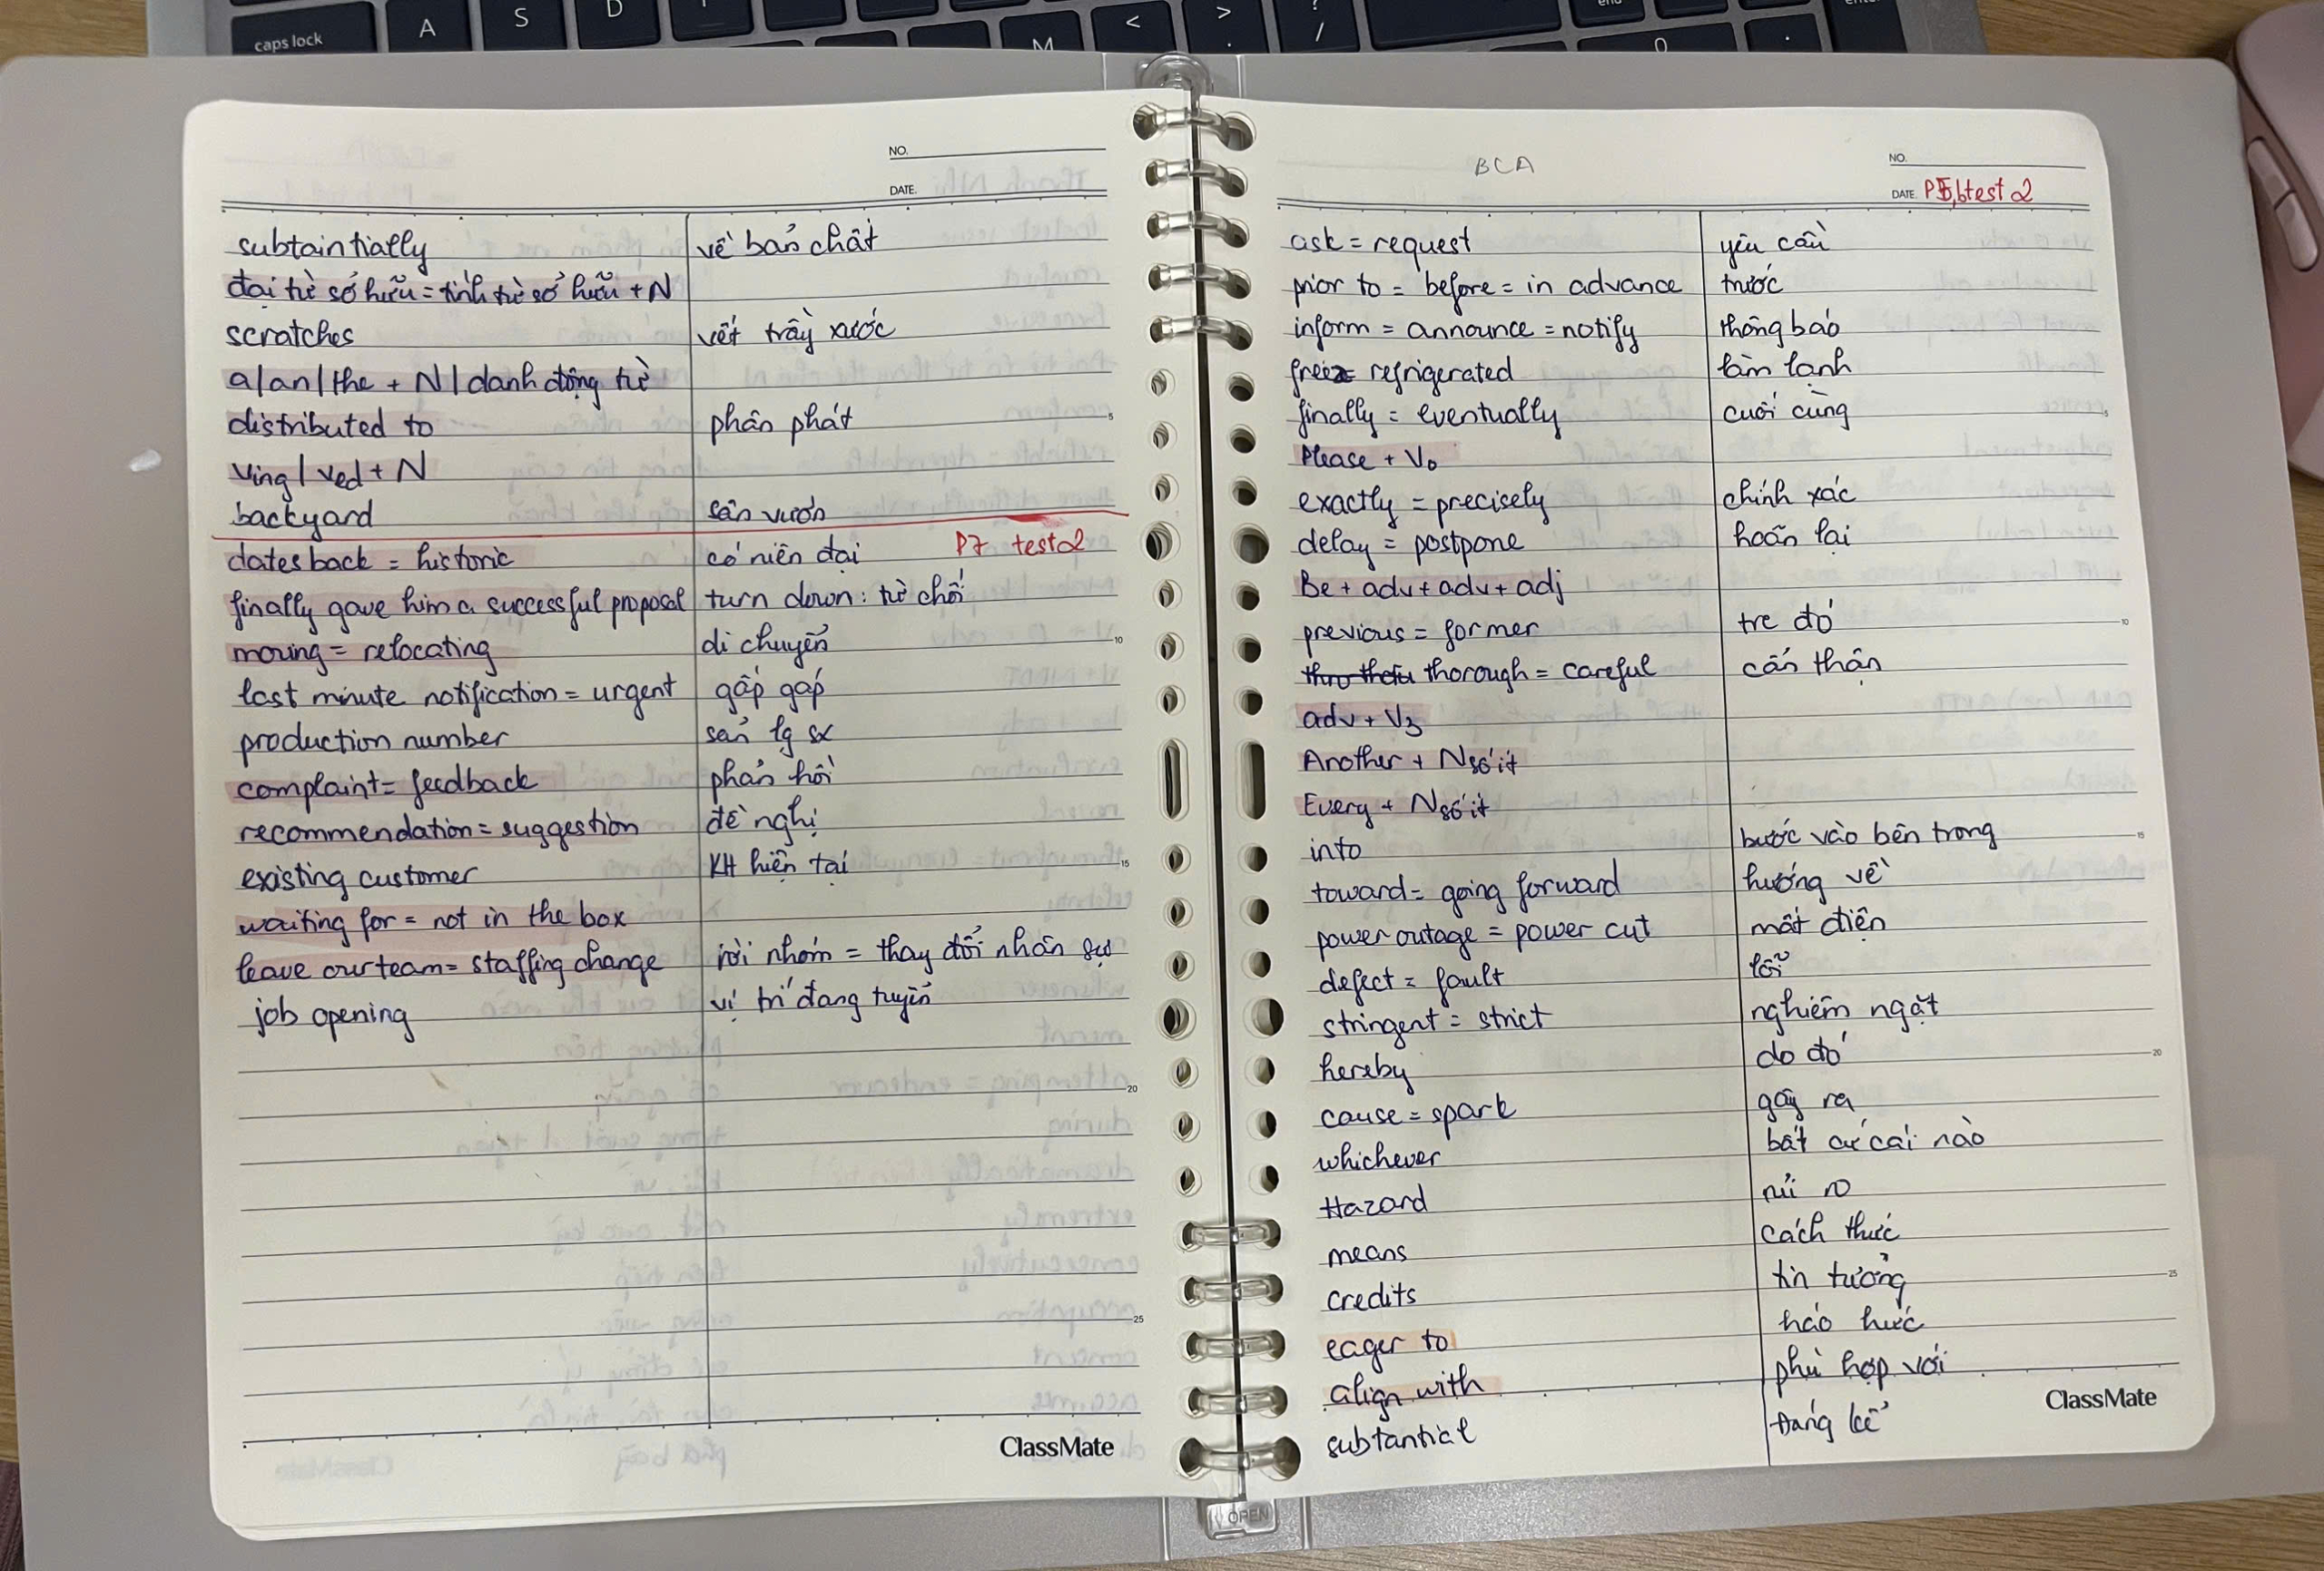 caps lock
A
S
D
M
<
>
.
?
/
NO.
DATE.
subtaintially	về bản chất
đại từ sở hữu = tính từ sở hữu + N
scratches	vết trầy xước
a/an/the + N/danh động từ
distributed to	phân phát
5
Ving/Ved + N
backyard	sân vườn
P7 test 2
dates back = historic	có niên đại
finally gave him a successful proposal	turn down: từ chối
moving = relocating	di chuyển
10
last minute notification = urgent	gấp gáp
production number	sản lg sx
complaint = feedback	phản hồi
recommendation = suggestion	đề nghị
existing customer	KH hiện tại
15
waiting for = not in the box
leave our team = staffing change	rời nhóm = thay đổi nhân sự
job opening	vị trí đang tuyển
20
25
ClassMate
BCA
NO.
DATE. P5,6 test 2
ask = request	yêu cầu
prior to = before = in advance	trước
inform = announce = notify	thông báo
refrigerated	làm lạnh
finally = eventually	cuối cùng
5
Please + V₀
exactly = precisely	chính xác
delay = postpone	hoãn lại
Be + adv + adv + adj
previous = former	trc đó
10
thorough = careful	cẩn thận
adv + V₃
Another + N số ít
Every + N số ít
into	bước vào bên trong
15
toward = going forward	hướng về
power outage = power cut	mất điện
defect = fault	lỗi
stringent = strict	nghiêm ngặt
hereby	do đó
20
cause = spark	gây ra
whichever	bất cứ cái nào
Hazard	rủi ro
means	cách thức
credits	tin tưởng
25
eager to	háo hức
align with	phù hợp với
subtantial	Đáng kể
ClassMate
OPEN